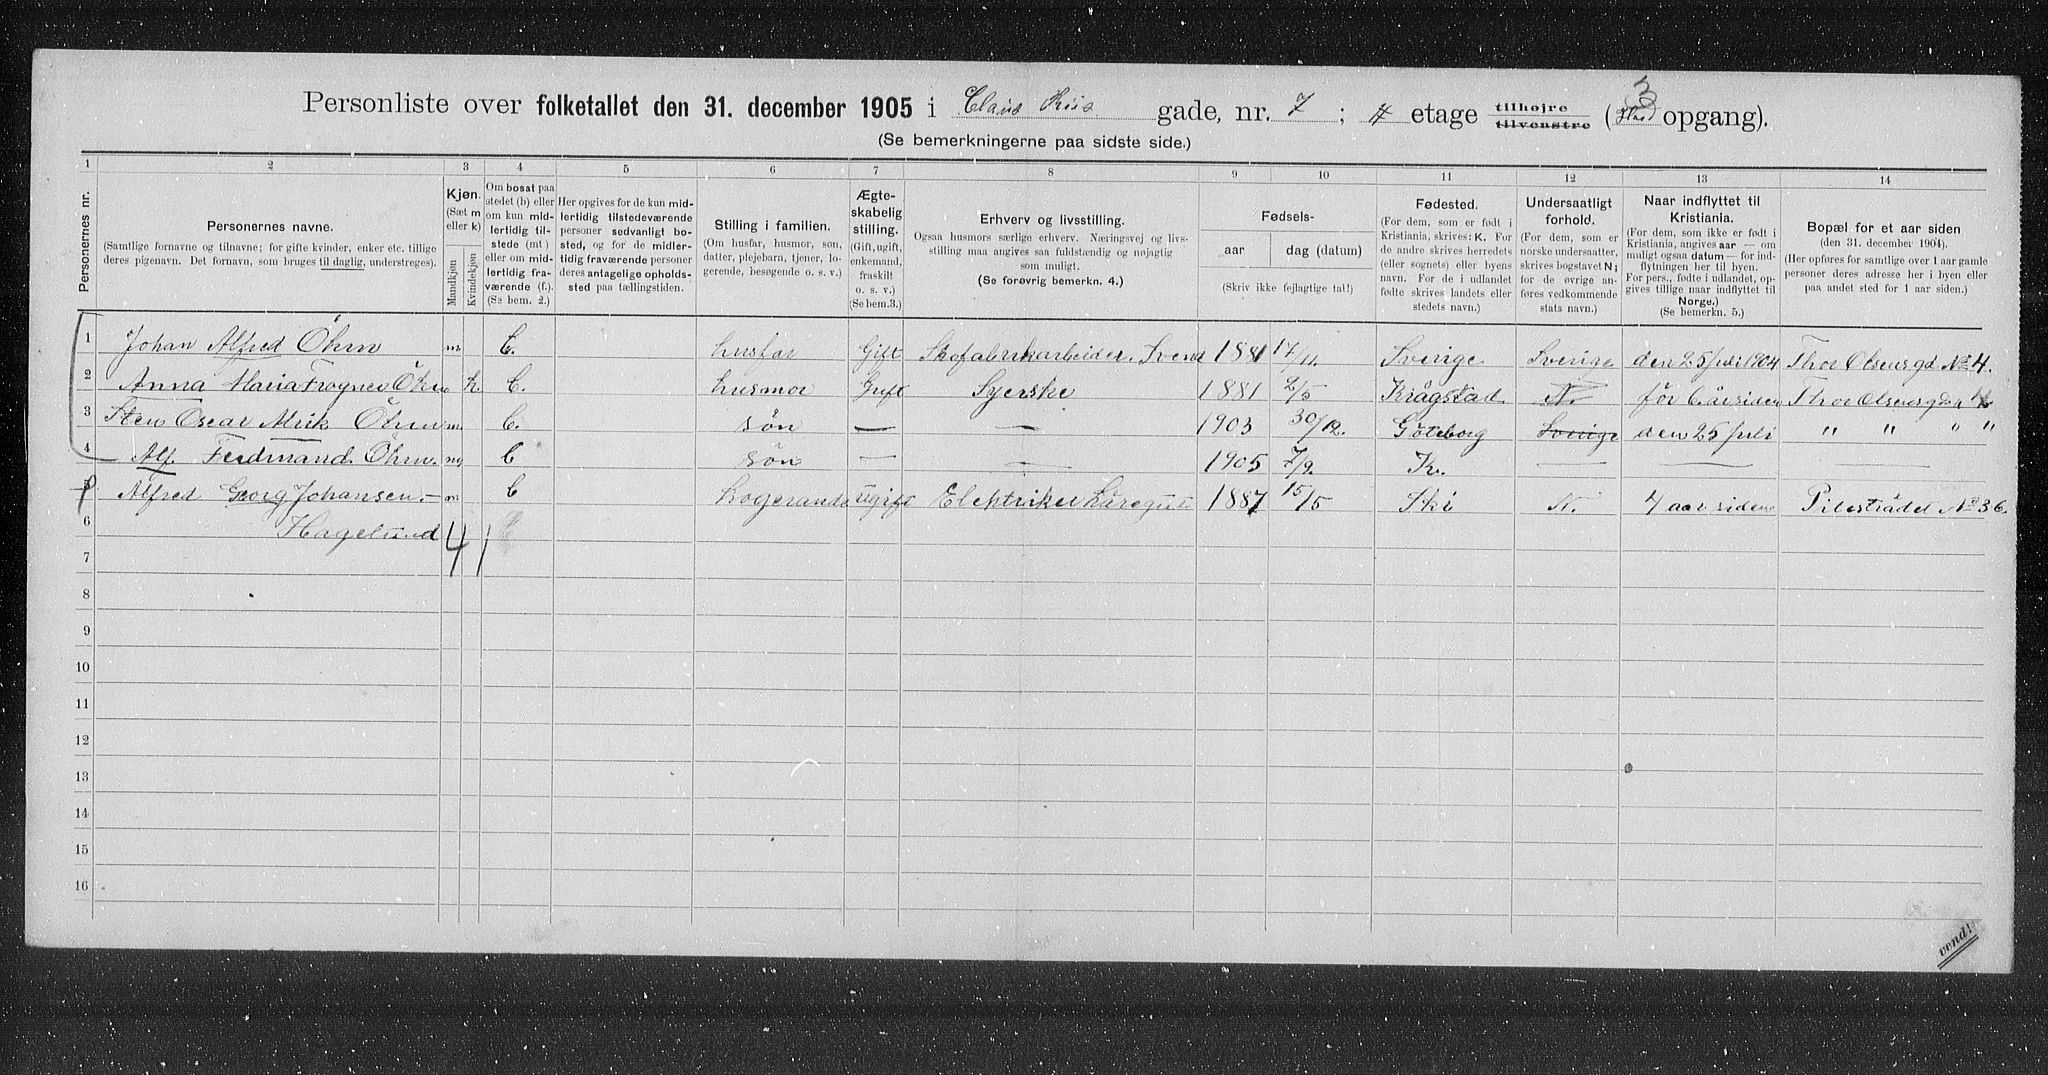 Personliste over folketallet den 31. december 1905 i Claus Riis gade, nr. 7 ; 4 etage tilhøjre tilvenstre ( 3 opgang).
(Se bemerkningerne paa sidste side.)
1 2 3 4 5 6 7 8 9 10 11 12 13 14
Personernes nr.
Personernes navne.
(Samtlige fornavne og tilnavne; for gifte kvinder, enker etc. tillige
deres pigenavn. Det fornavn, som bruges til daglig, understreges).
Kjøn.
(Sæt m
eller k)
Mandkjøn
Kvindekjøn
Om bosat paa
stedet (b) eller
om kun mid-
lertidig til-
stede (mt)
eller om mid-
lertidig fra-
værende (f.).
(Se bem. 2.)
Her opgives for de kun mid-
lertidig tilstedeværende
personer sedvanligt bo-
sted, og for de midler-
tidig fraværende personer
deres antagelige opholds-
sted paa tællingstiden.
Stilling i familien.
(Om husfar, husmor, søn,
datter, plejebarn, tjener, lo-
gerende, besøgende o. s. v.)
Ægte-
skabelig
stilling.
(Gift, ugift,
enkemand,
fraskilt
o. s. v.)
(Se bem.3.)
Erhverv og livsstilling.
Ogsaa husmors særlige erhverv. Næringsvej og livs-
stilling maa angives saa fuldstændig og nøjagtig
som muligt.
(Se forøvrig bemerkn. 4.)
Fødsels-
aar dag (datum)
(Skriv ikke fejlagtige tal!)
Fødested.
(For dem, som er født i
Kristiania, skrives: K. For
de andre skrives herredets
(eller sognets) eller byens
navn. For de i udlandet
fødte skrives landets eller
stedets navn.)
Undersaatligt
forhold.
(For dem, som er
norske undersaatter,
skrives bogstavet N;
for de øvrige an-
føres vedkommende
stats navn.)
Naar indflyttet til
Kristiania.
(For dem, som ikke er født i
Kristiania, angives aar — om
muligt ogsaa datum — for ind-
flytningen her til byen.
For pers., fødte i udlandet, op-
gives tillige naar indflyttet til
Norge.)
(Se bemerkn. 5.)
Bopæl for et aar siden
(den 31. december 1904).
(Her opføres for samtlige over 1 aar gamle
personer deres adresse her i byen eller
paa andet sted for 1 aar siden.)
1 Johan Alfred Öhrn m b. husfar Gift Skofabrikarbeider. Svend 1881 17/11 Sverige Sverige den 25 juli 1904 Thor Olsens gd No 4.
2 Anna Maria Frogner Öhrn k. b. husmor Gift Syerske 1881 2/5 Krågstad N. för 6 år siden Thor Olsens gd
3 Sten Oscar Alrik Öhrn m. b. søn — — 1903 30/12. Göteborg Sverige den 25 juli " " " "
4 Alf Ferdinand Öhrn. m b søn — — 1905 7/9. K. — —
5 Alfred Georg Johansen.- m b Logerande ugift Elektriker Läregut 1887 15/5 Ski N. 7 aar siden Pilestrådet No 36.
6 Hagelund 4 1
7
8
9
10
11
12
13
14
15
16
vend!